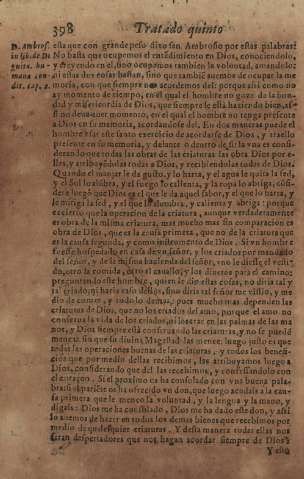 398 Tratado quinto
D. Ambros.
in lib. de Di
gnita. hu-
mana con
dit. cap. 2.
esta que con grande peso dixo san Ambrosio por estas palabras:
No basta que ocupemos el entendimiento en Dios, conociendolo,
y creyendo en el, sino ocupemos tambien la voluntad, amandolo:
ni estas dos cosas bastan, sino que tambien auemos de ocupar la me
moria, con que siempre nos acordemos del: porque assi como no
ay momento de tiempo, en el qual el hombre no goze de la bon-
dad y misericordia de Dios, que siempre le está haziendo bien, assi
no deue auer momento, en el qual el hombre no tenga presente
a Dios en su memoria, acordandose del. En dos maneras puede el
hombre usar este santo exercicio de acordarse de Dios, y traello
presente en su memoria, y delante
derando que todas las obras de las criaturas las obra Dios por e-
llas, y atribuyendolas todas a Dios, y recibiendolas todas de Dios.
Quando el manjar le da gusto, y lo harta, y el agua le quita la sed,
y el Sol lo alumbra, y el fuego lo calienta, y la ropa lo abriga; consi-
dere luego que Dios es el que le da aquel sabor, y el que lo harta, y
le mitiga la sed, y el que lo alumbra, y calienta y abriga: porque
es cierto que la operacion de la criatura, aunque verdaderamente
es obra de la misma criatura, mas mucho mas sin comparacion es
obra de Dios, que es la causa primera, que no de la criatura que
es la causa segunda, y como instrumento de Dios. Si vn hombre
fuesse hospedado en casa de vn señor, y los criados por mandado
del señor, y de la misma hazienda del señor, vno le diesse el vesti-
do, otro la comida, otro el cauallo, y los dineros para el camino;
preguntando este hombre, quien le dio estas cosas, no diria tal y
tal criado, ni haria caso dellos, sino diria tal señor me vistio, y me
dio de comer, y todo lo demas: pues mucho mas dependen las
criaturas de Dios, que no los criados del amo, porque el amo no
conserua la vida de los criados, ni los trae en las palmas de las ma
nos, y Dios siempre está conseruando las criaturas, y no se puedē
menear, sin que su diuina Magestad las menee: luego justo es que
todas las operaciones buenas de las criaturas, y todos los benefi-
cios que por medio dellas recibimos, los atribuyamos luego a
Dios, considerando que del las recebimos, y confessandolo con
el coraçon. Si el proximo os ha consolado con vna buena pala-
bra, o siquiera os ha ofrecido vn don, que luego acudais a la cau-
sa primera que le meneo la voluntad, y la lengua y la mano, y
digais: Dios me ha consolado, Dios me ha dado este don, y assi
lo auemos de hazer en todos los demas bienes que recibimos por
medio de qualesquier criaturas. Y desta manera todas ellas nos
seran despertadores que nos hagan acordar siempre de Dios:
Y esta